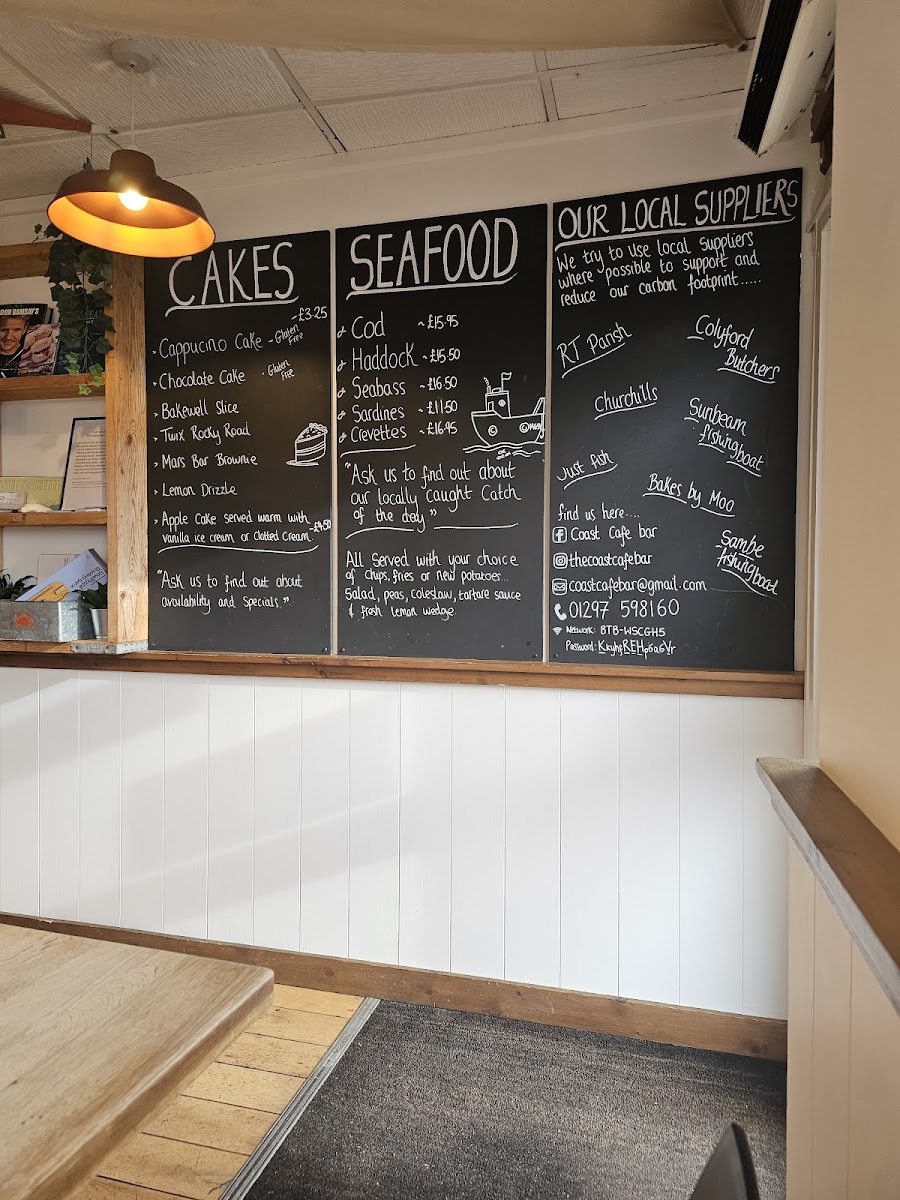 CAKES
~£3·25
> Cappucino Cake ~ Gluten Free
> Chocolate Cake · Gluten Free
> Bakewell Slice
> Twix Rocky Road
> Mars Bar Brownie
> Lemon Drizzle
> Apple Cake served warm with ~£4·50
vanilla ice cream or clotted cream
"Ask us to find out about
availability and specials."
SEAFOOD
Cod ~£15·95
Haddock ~£15·50
Seabass ~£16·50
Sardines ~£11·50
Crevettes ~£16·95
"Ask us to find out about
our locally caught Catch
of the day."
All served with your choice
of chips, fries or new potatoes...
Salad, peas, coleslaw, tartare sauce
& fresh lemon wedge.
OUR LOCAL SUPPLIERS
We try to use local suppliers
where possible to support and
reduce our carbon footprint.....
RT Parish
Colyford
Butchers
Churchills
Sunbeam
fishingboat
Just fish
Bakes by Moo
Sambe
fishingboad
find us here....
Coast Cafe bar
@thecoastcafebar
coastcafebar@gmail.com
01297 598160
Network: BTB-WSCGH5